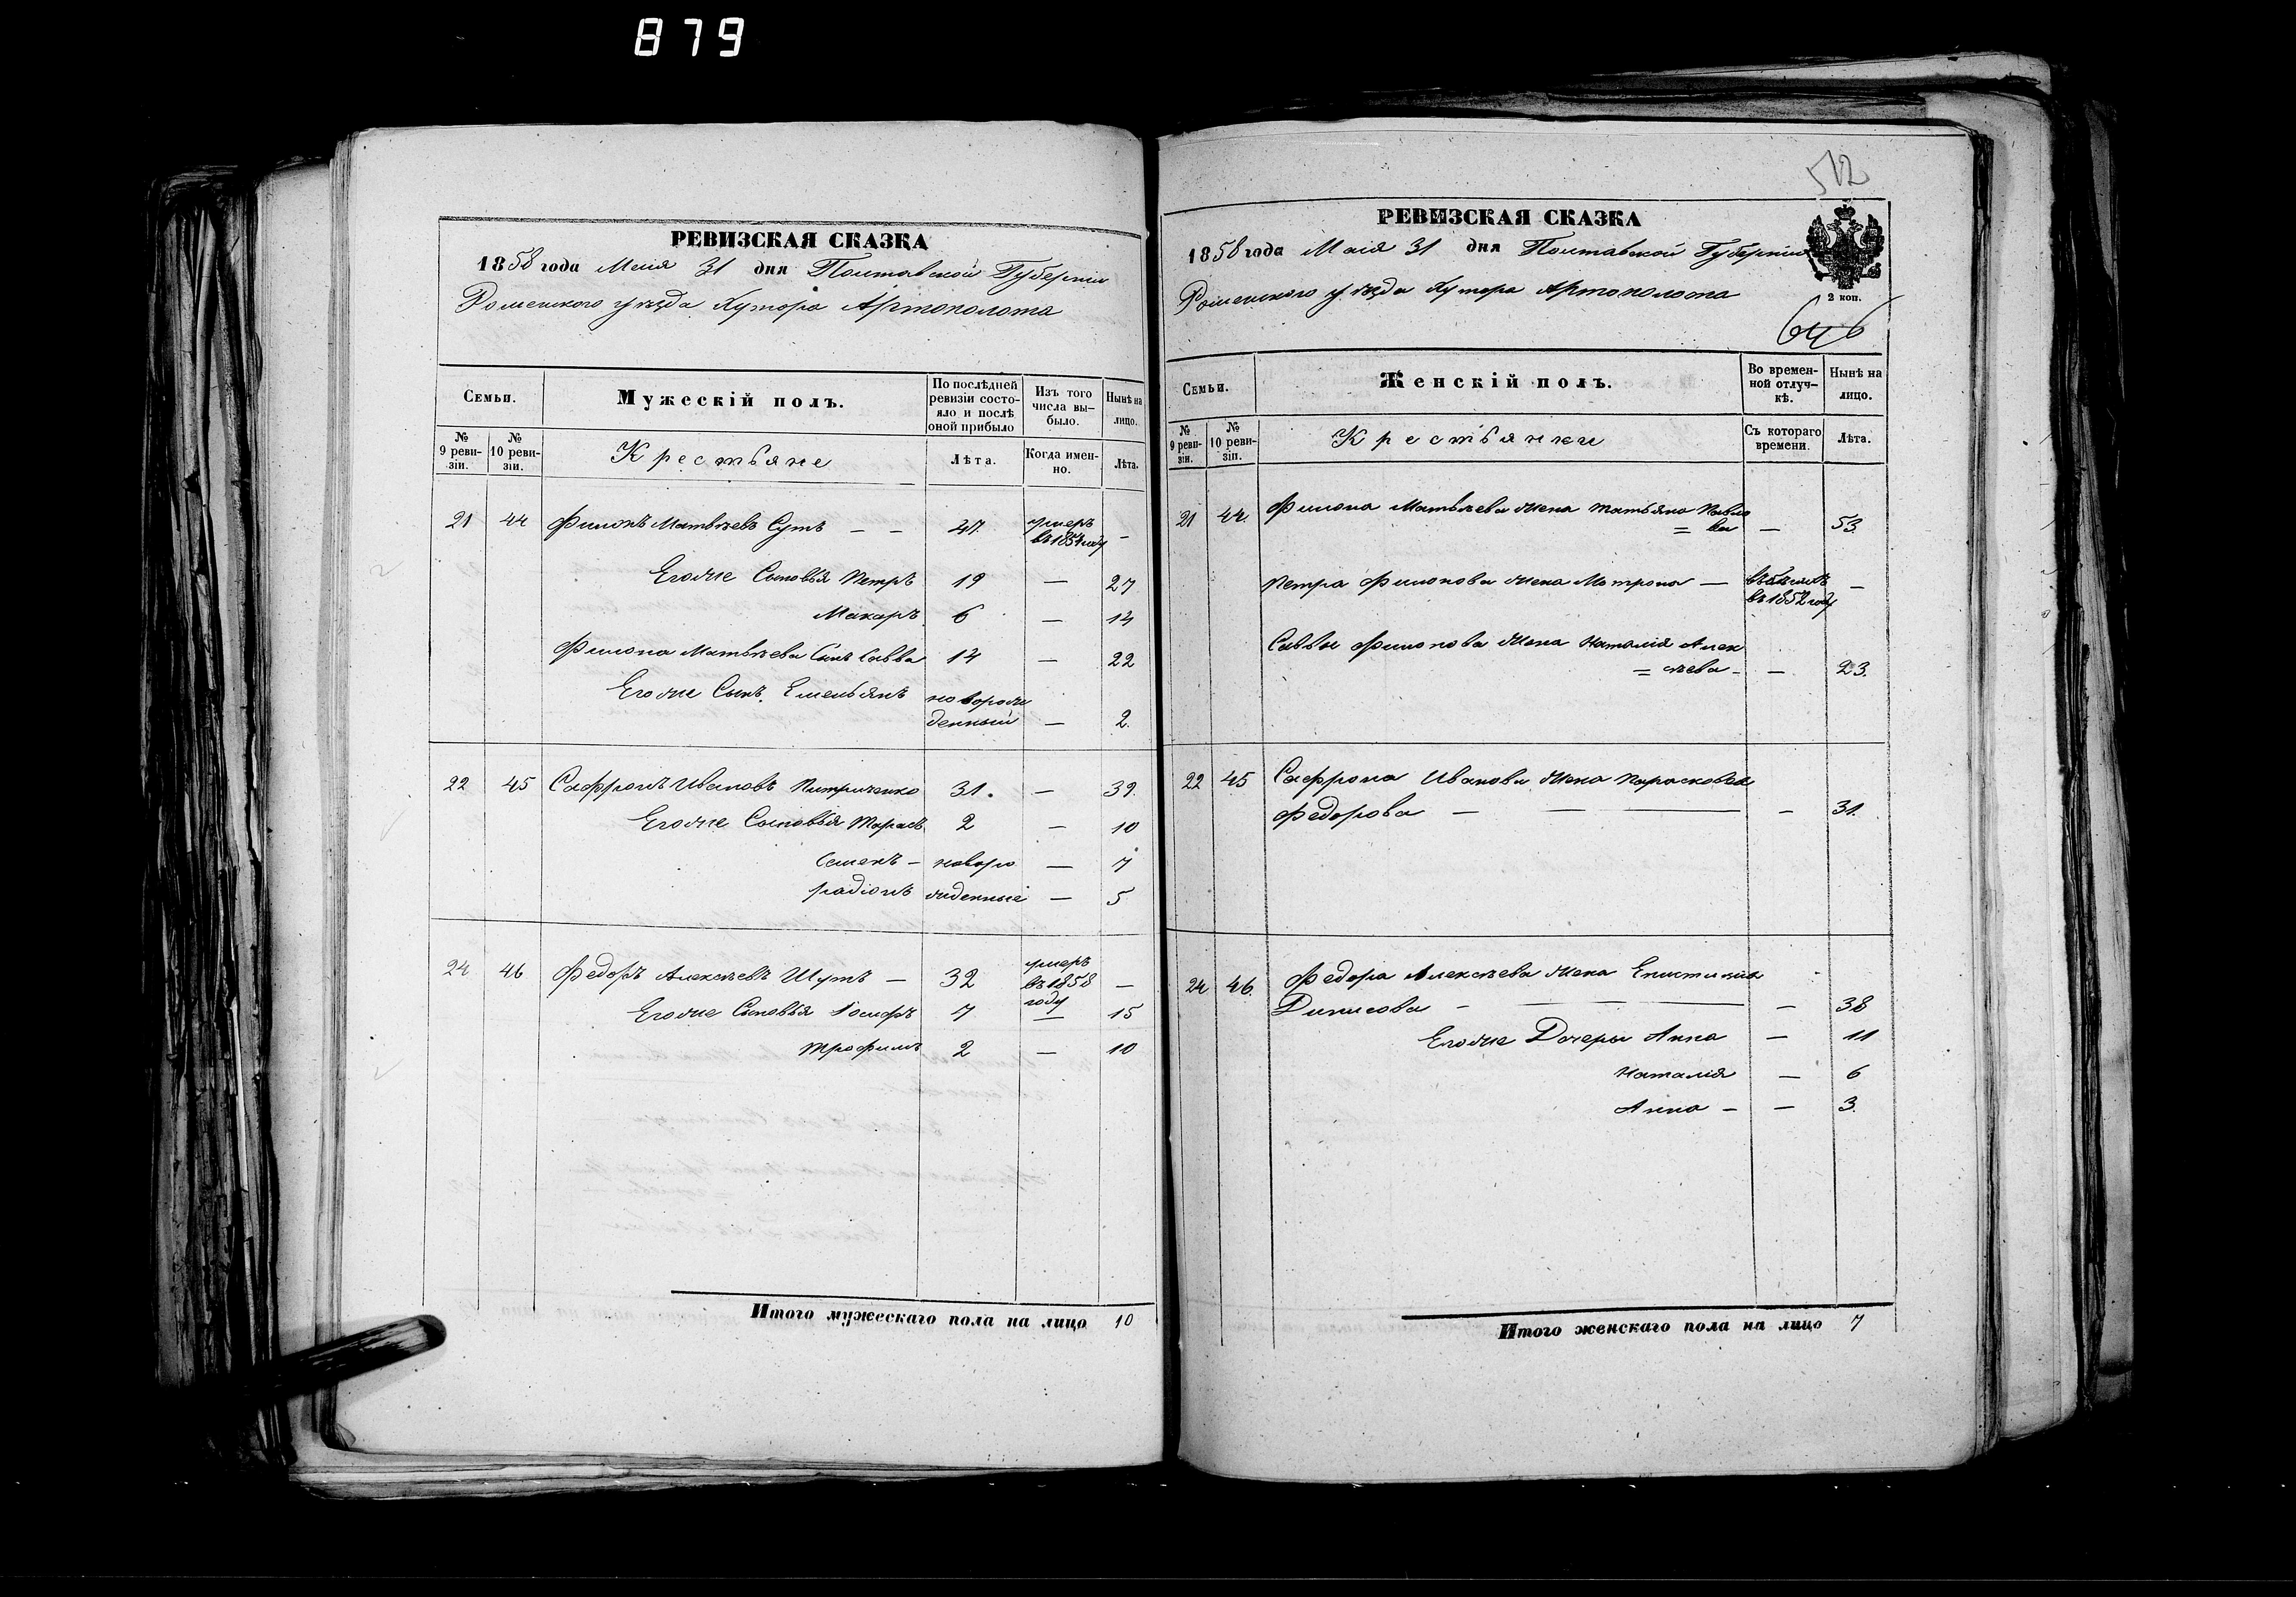 879
РЕВИЗСКАЯ СКАЗКА
1858 года Маія 31 дня Полтавской Губерніи
Роменского уѣзда Хутора Артополота
Семьи.
Мужескій полъ.
По послѣдней ревизіи состояло и послѣ оной прибыло
Изъ того числа выбыло.
Нынѣ на лицо.
№ 9 ревизіи.
№ 10 ревизіи.
Крестьяне
Лѣта.
Когда именно.
Лѣта.
21 44 Филонъ Матвѣевъ Сутъ — — 47. умеръ въ 1854 году —
Егоже Сыновья Петръ 19 — 27
Макаръ 6 — 14
Филона Матвѣева Сынъ Савва 14 — 22
Егоже Сынъ Емельянъ новорож
денный — 2.
22 45 Сафронъ Ивановъ 31. — 39.
Егоже Сыновья Тарасъ 2 — 10
Семенъ — новоро — 7
Радіонъ жденные — 5
24 46 Федоръ Алексѣевъ Шутъ — 32 умеръ въ 1858 году —
Егоже Сыновья Іосифъ 7 — 15
Трофимъ 2 — 10
Итого мужескаго пола на лицо 10
512
РЕВИЗСКАЯ СКАЗКА
1858 года Маія 31 дня Полтавской Губерніи
Роменского уѣзда Хутора Артополота
2 коп.
646
Семьи.
Женскій полъ.
Во временной отлучкѣ.
Нынѣ на лицо.
№ 9 ревизіи.
№ 10 ревизіи.
Крестьянки
Съ котораго времени.
Лѣта.
21 44. Филона Матвѣева Жена Татьяна Павло
= ва — 53.
Петра Филонова Жена Матрона — въ 1852 году —
Саввы Филонова Жена Наталія Алек
= сѣева — — 23.
22 45 Сафрона Иванова Жена Парасковья
Федорова — — — 31.
24 46. Федора Алексѣева Жена Епистимія
Динисова — — — 38
Егоже Дочери Анна — 11
Наталія — 6
Анна — — 3.
Итого женскаго пола на лицо 7